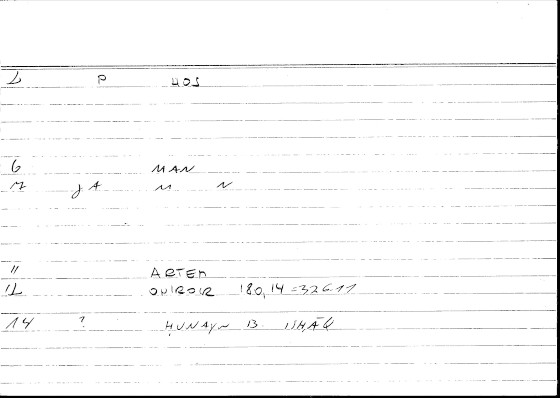 2 P HOS
6 MAN
7 JA M N
11 ARTEM
12 ONIROCR 180,14 = 326.11
14 ? ḤUNAYN B. ISḤĀQ